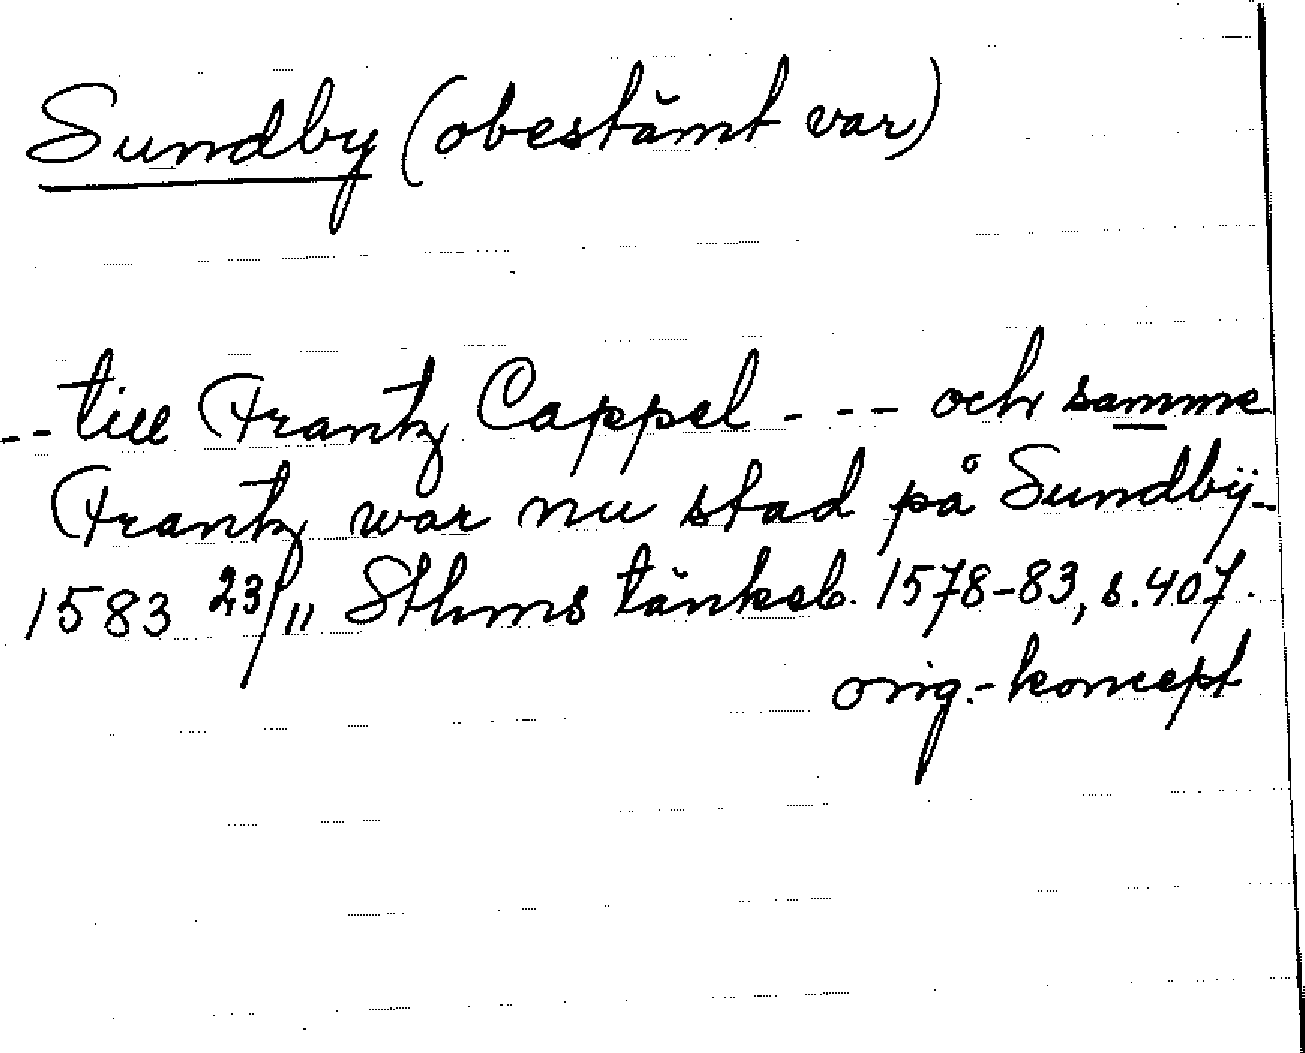 Sundby (obestämt var)
-- till Frantz Cappel - - - och samme
Frantz war nu stad på Sundbÿ-
1583 23/11 Sthms tänkeb. 1578-83, s. 407.
orig.-koncept